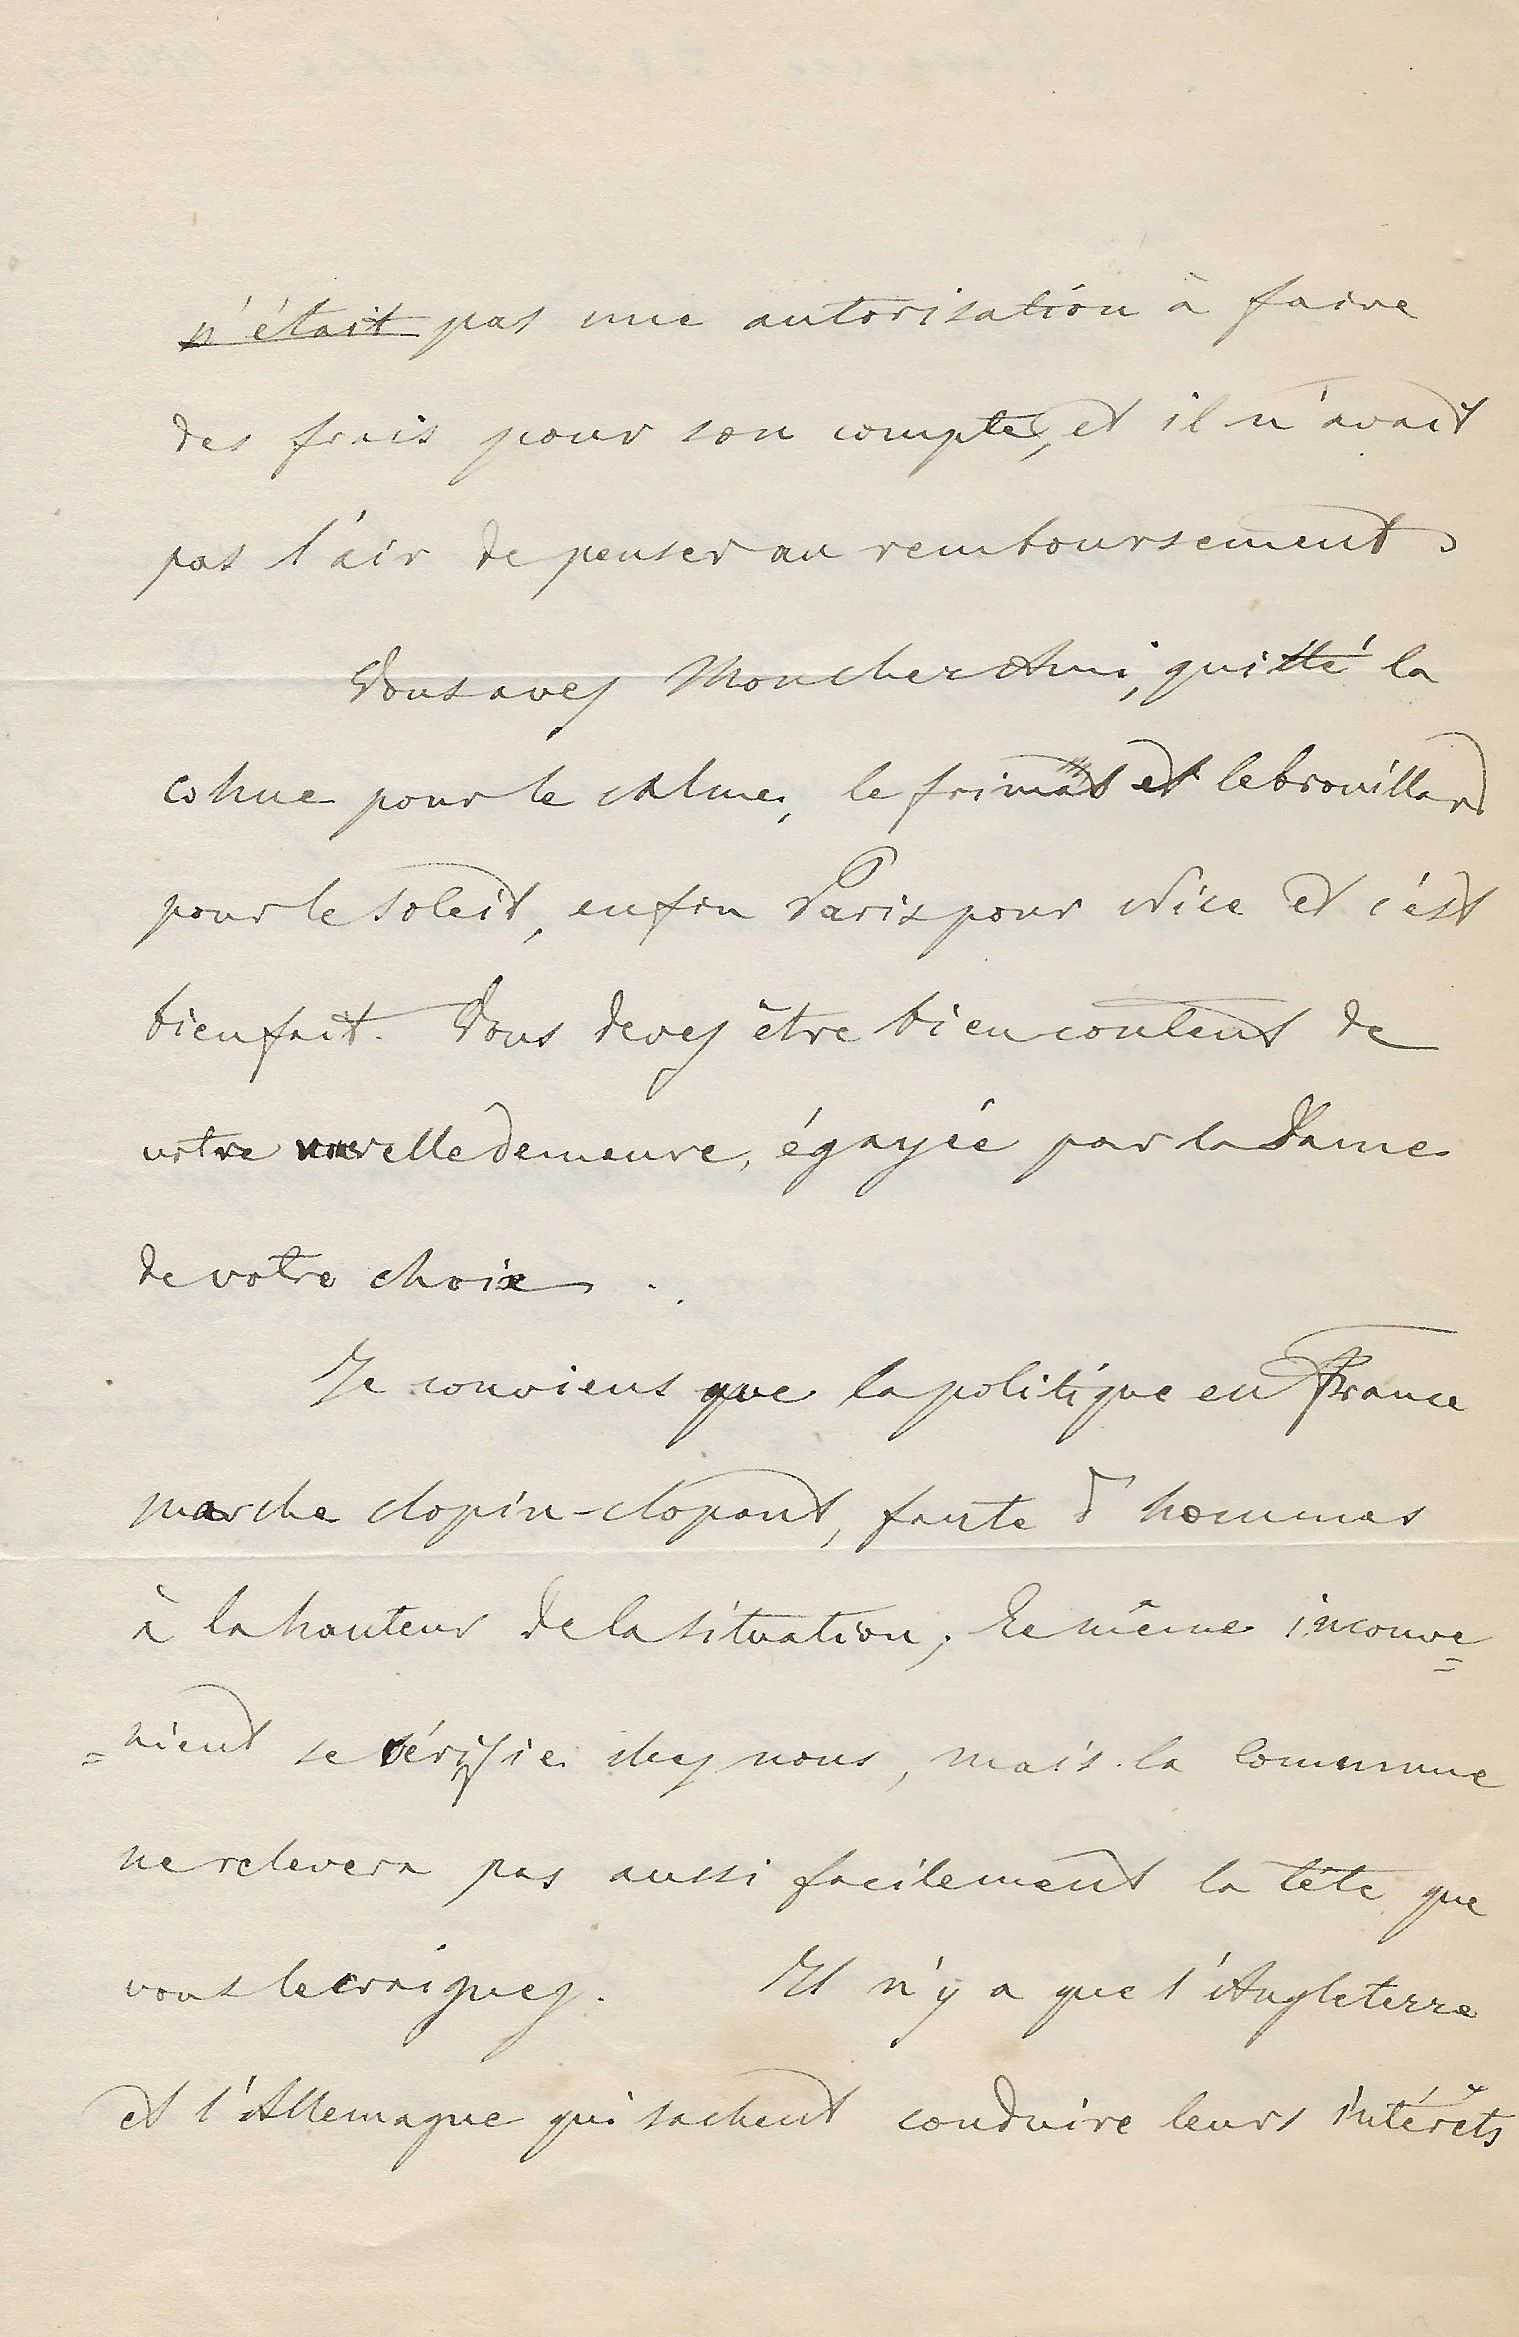 n'était pas une autorisation à faire
des frais pour son compte, et il n'avait
pas l'air de penser au remboursement.
Vous avez Mon cher Ami, quitté la
cohue pour le calme, le frimat et le brouillard
pour le soleil, enfin Paris pour Nice et c'est
bien fait. Vous devez être bien content de
votre nouvelle demeure, égayée par la Dame
de votre choix.
Je conviens que la politique en France
marche clopin-clopant, faute d'hommes
à la hauteur de la situation; le même inconve=
=nient se vérifie chez nous, mais la Commune
ne relevera pas aussi facilement la tête que
vous le craignez. Il n'y a que l'Angleterre
et l'Allemagne qui sachent conduire leurs intérêts